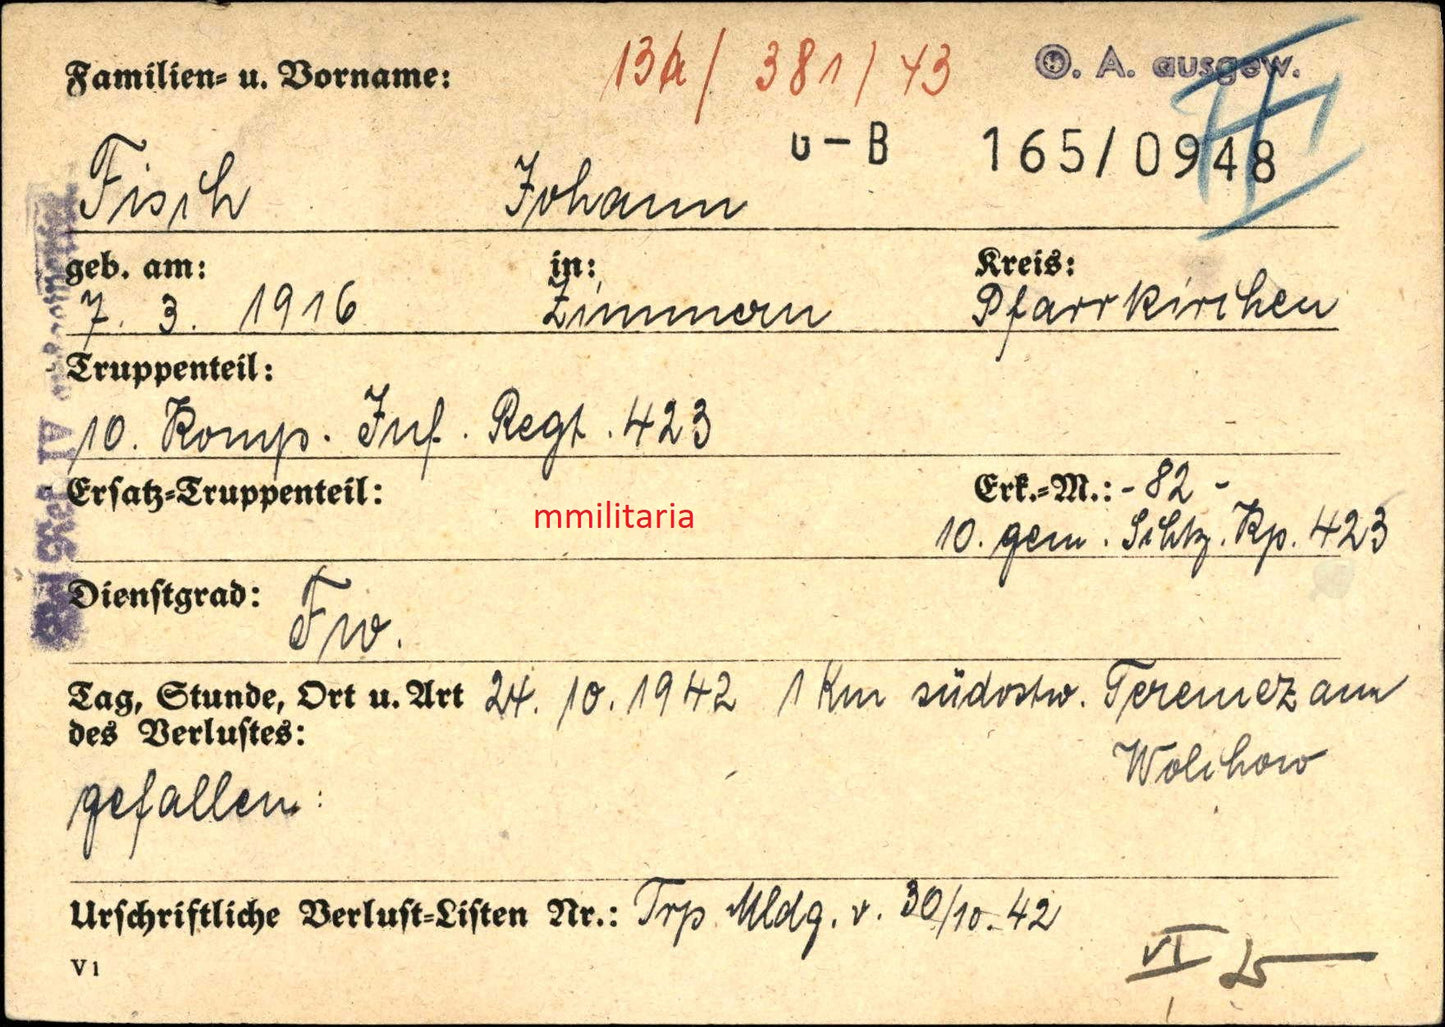 Familien- u. Vorname:
13a/ 381/43
O. A. ausgew.
G-B 165/0948
Fisch Johann
geb. am: in: Kreis:
7. 3. 1916 Zimmern Pfarrkirchen
Truppenteil:
10. Komp. Inf. Regt. 423
Ersatz-Truppenteil: Erk.-M.: -82-
mmilitaria
10. gem. Schtz. Kp. 423
Dienstgrad: Fw.
Tag, Stunde, Ort u. Art 24. 10. 1942 1 Km südostw. Teremez am
des Verlustes: Wolchow
gefallen:
Urschriftliche Verlust-Listen Nr.: Trp Mldg. v. 30/10.42
V1
VI